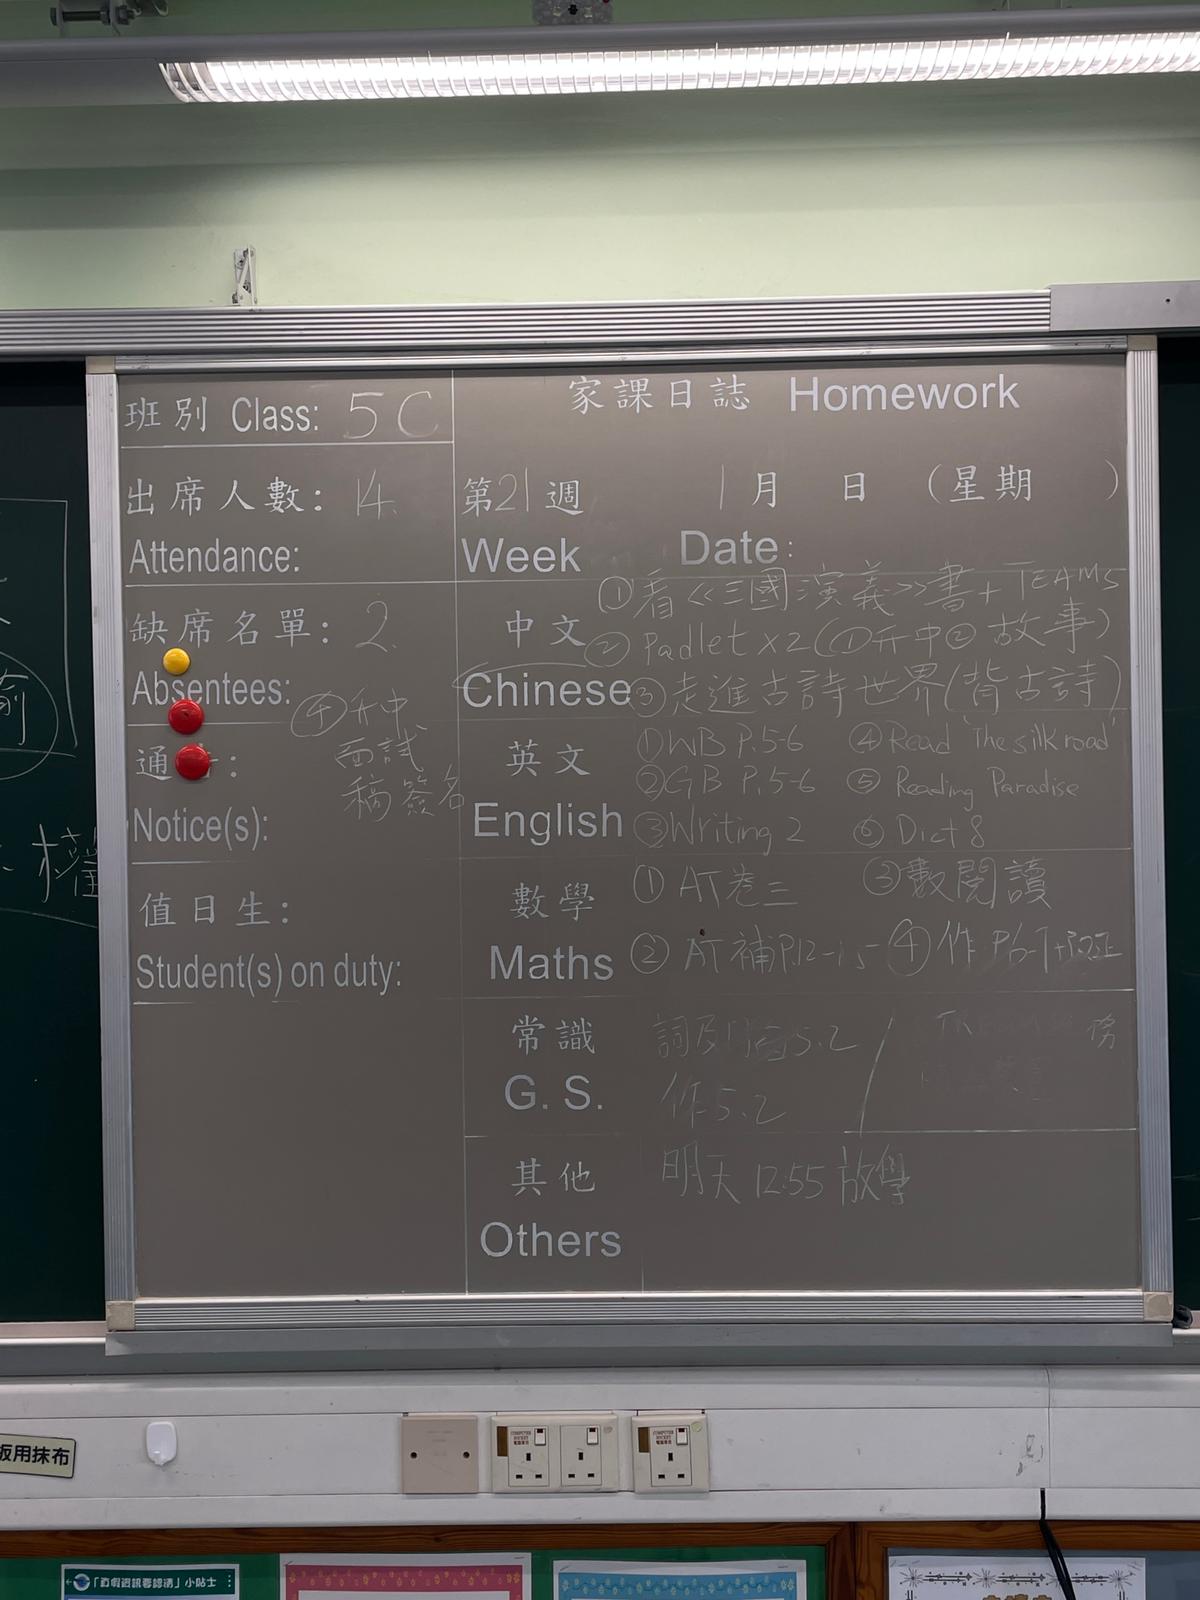 班別 Class: 5C
家課日誌 Homework
出席人數: 14
Attendance:
第21週 1月 日 (星期 )
Week Date:
缺席名單: 2
Absentees:
中文
Chinese
①看《三國演義》書+TEAMS
②Padlet x2(①升中②故事)
③走進古詩世界(背古詩)
④升中
面試
稿簽名
通 :
Notice(s):
英文
English
①WB P.5-6 ④Read The silk road
②GB P.5-6 ⑤Reading Paradise
③Writing 2 ⑥Dict 8
值日生:
Student(s) on duty:
數學
Maths
①AT卷三 ③數閱讀
②AT補P.12-15 ④作P6-7+改正
常識
G. S.
詞及 5.2
作5.2
其他
Others
明天12:55放學
板用抹布
COMPUTER SOCKET
COMPUTER SOCKET
「真假資訊要認清」小貼士